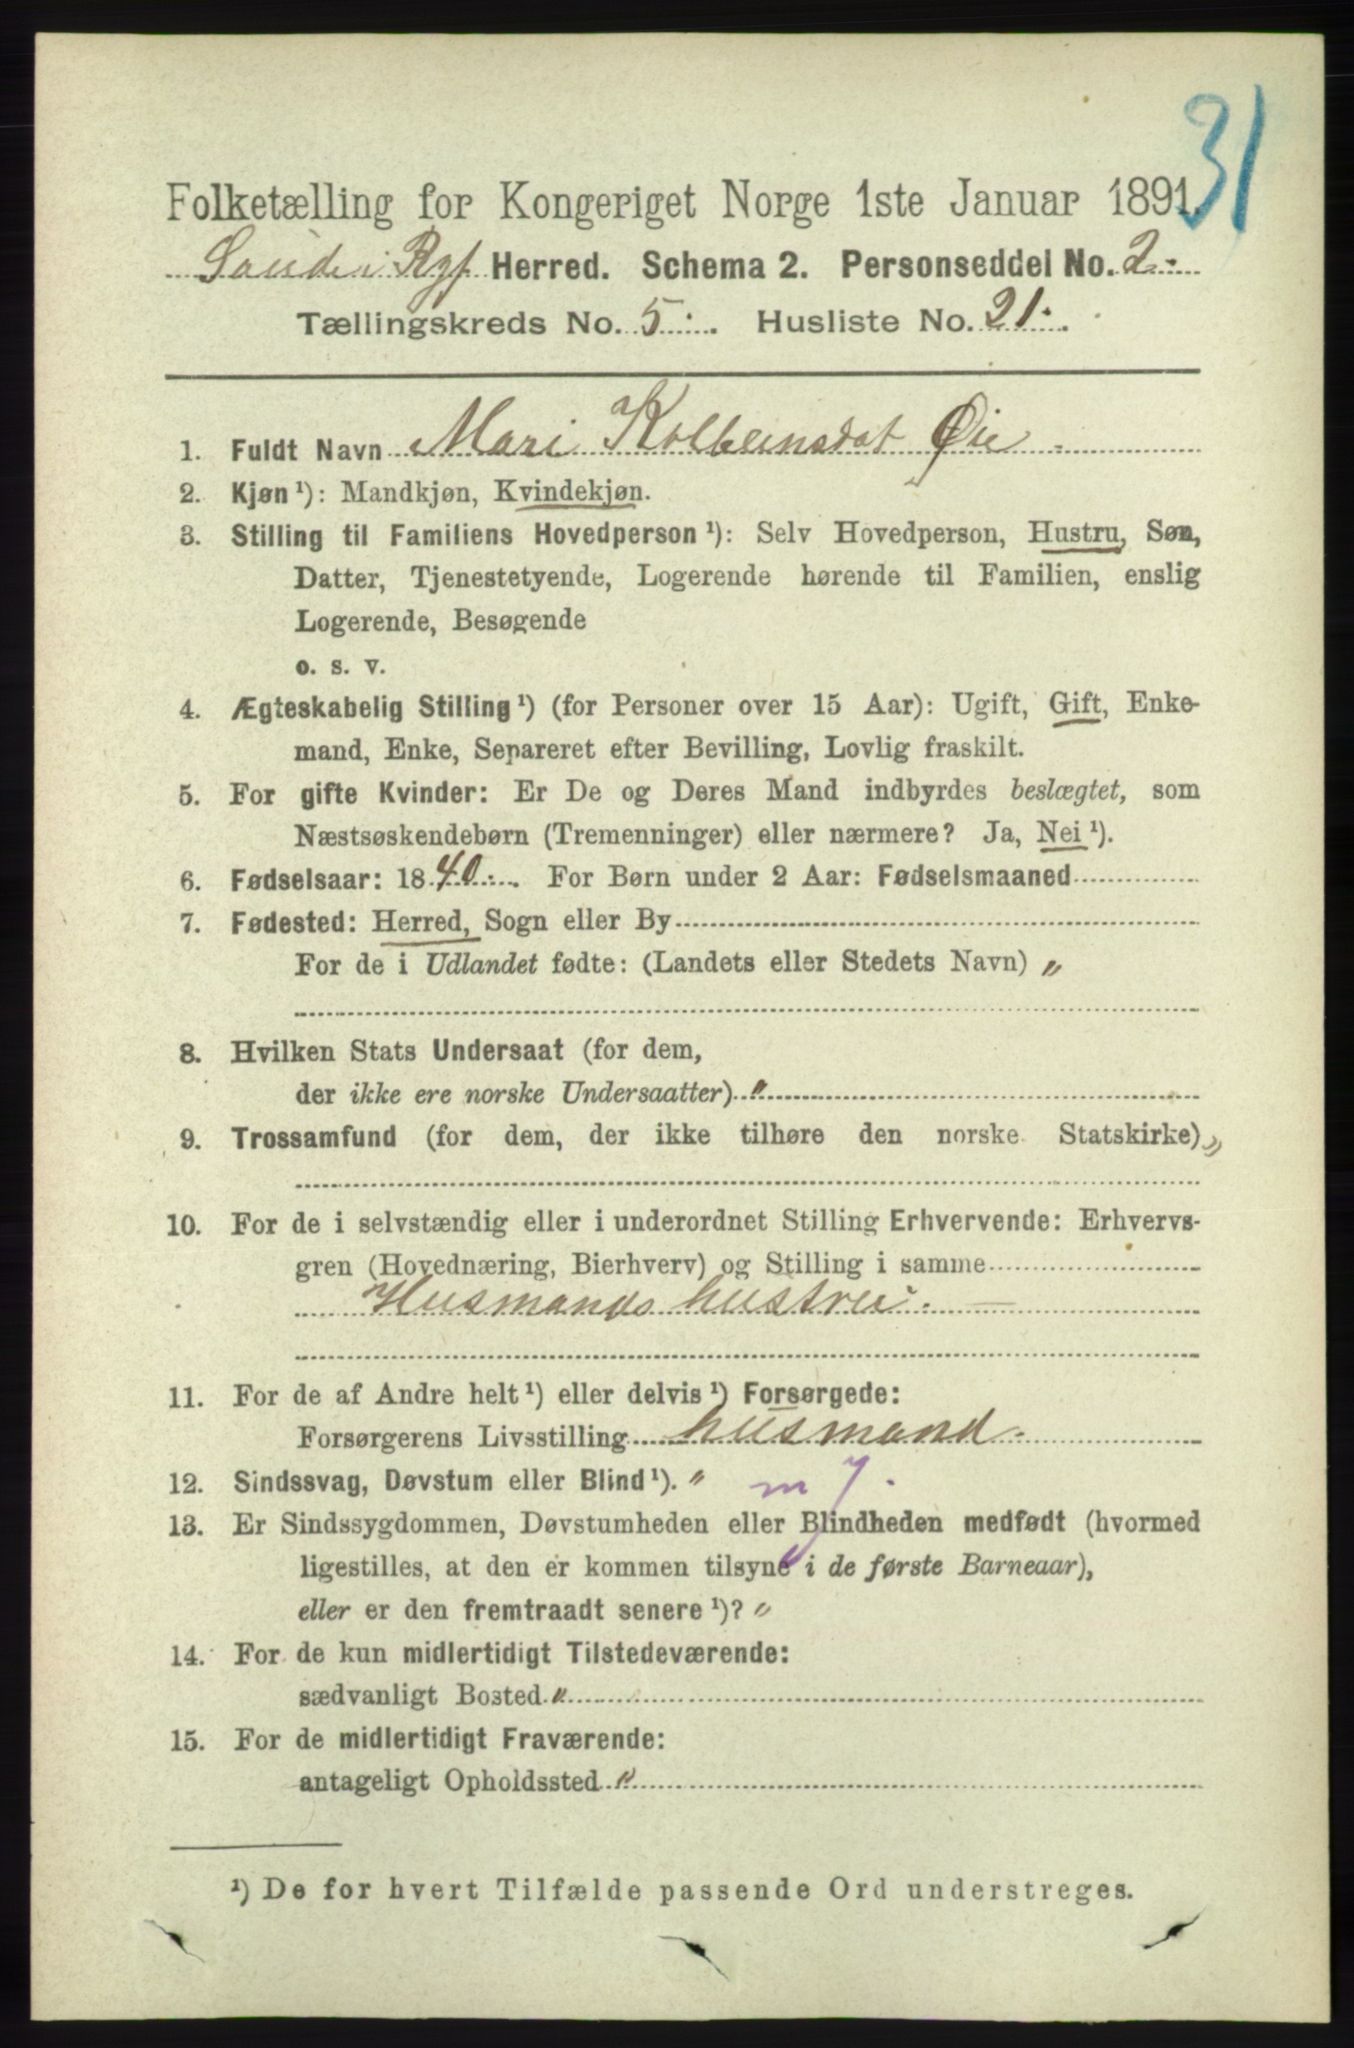 31
Folketælling for Kongeriget Norge 1ste Januar 1891.
Saude i Ryf Herred. Schema 2. Personseddel No. 2.
Tællingskreds No. 5. Husliste No. 21.
1. Fuldt Navn Mari Kolbeinsdat Øie
2. Kjøn ¹): Mandkjøn, Kvindekjøn.
3. Stilling til Familiens Hovedperson ¹): Selv Hovedperson, Hustru, Søn,
Datter, Tjenestetyende, Logerende hørende til Familien, enslig
Logerende, Besøgende
o. s. v.
4. Ægteskabelig Stilling ¹) (for Personer over 15 Aar): Ugift, Gift, Enke-
mand, Enke, Separeret efter Bevilling, Lovlig fraskilt.
5. For gifte Kvinder: Er De og Deres Mand indbyrdes beslægtet, som
Næstsøskendebørn (Tremenninger) eller nærmere? Ja, Nei ¹).
6. Fødselsaar: 1840. For Børn under 2 Aar: Fødselsmaaned
7. Fødested: Herred, Sogn eller By
For de i Udlandet fødte: (Landets eller Stedets Navn) "
8. Hvilken Stats Undersaat (for dem,
der ikke ere norske Undersaatter) "
9. Trossamfund (for dem, der ikke tilhøre den norske Statskirke) "
10. For de i selvstændig eller i underordnet Stilling Erhvervende: Erhvervs-
gren (Hovednæring, Bierhverv) og Stilling i samme
Husmands hustru. —
11. For de af Andre helt ¹) eller delvis ¹) Forsørgede:
Forsørgerens Livsstilling husmand.
12. Sindssvag, Døvstum eller Blind ¹). " m 7.
13. Er Sindssygdommen, Døvstumheden eller Blindheden medfødt (hvormed
ligestilles, at den er kommen tilsyne i de første Barneaar),
eller er den fremtraadt senere ¹)? "
14. For de kun midlertidigt Tilstedeværende:
sædvanligt Bosted "
15. For de midlertidigt Fraværende:
antageligt Opholdssted "
¹) De for hvert Tilfælde passende Ord understreges.